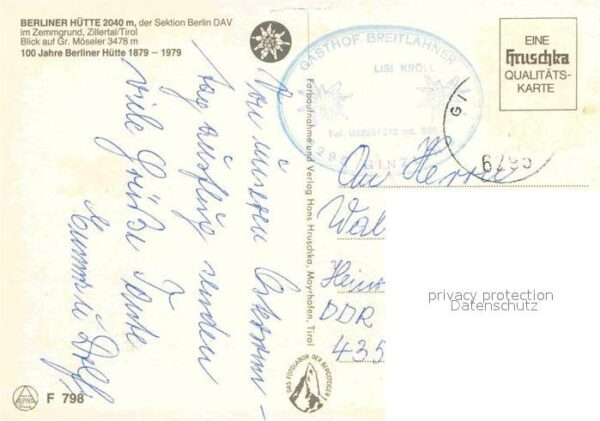 BERLINER HÜTTE 2040 m, der Sektion Berlin DAV
im Zemmgrund, Zillertal/Tirol
Blick auf Gr. Möseler 3478 m
100 Jahre Berliner Hütte 1879 – 1979
Von unseren
tagausflug senden
viele Grüße Tante
Farbaufnahme und Verlag Hans Hruschka, Mayrhofen, Tirol
GASTHOF BREITLAHNER
LISI KRÖLL
Tel.
GINZ
EINE
Hruschka
QUALITÄTS-
KARTE
6295
An Herrn
Wal
Hein
DDR
435
privacy protection
Datenschutz
DAS FOTOLABOR DER BERGSTEIGER
F 798